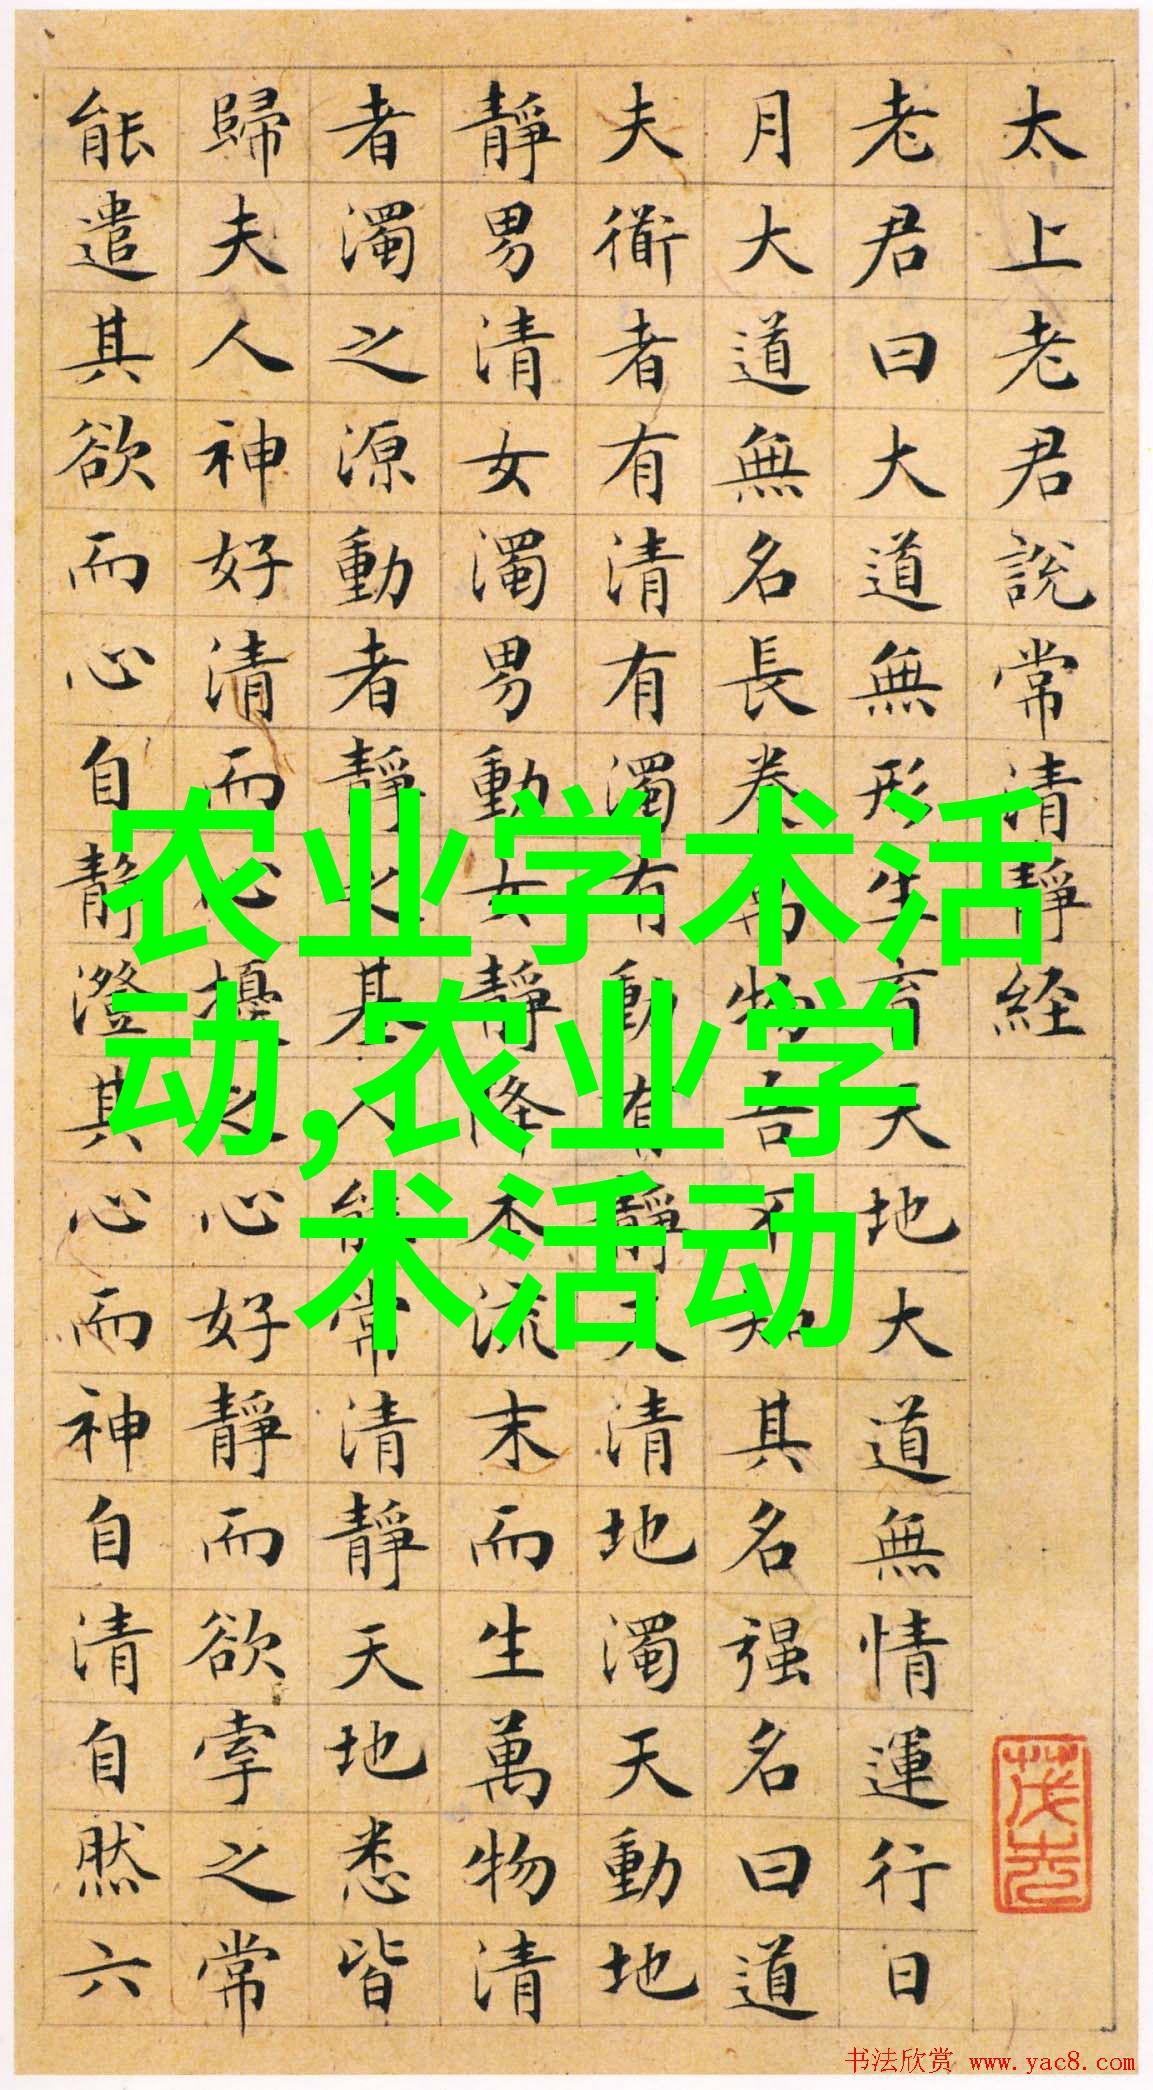 太上老君說常清靜経
老君曰大道無形生育天地大道無情運行日
月大道無名長養萬物吾不知其名强名曰道
夫衜者有清有濁有動有靜天清地濁天動地
靜男清女濁男動女靜降本流末而生萬物清
者濁之源動者靜之基人能常清靜天地悉皆
歸夫人神好清而心擾之心好靜而欲牽之常
能遣其欲而心自靜澄其心而神自清自然六
农业学术活
动,农业学
术活动
书法欣赏 www.yac8.com